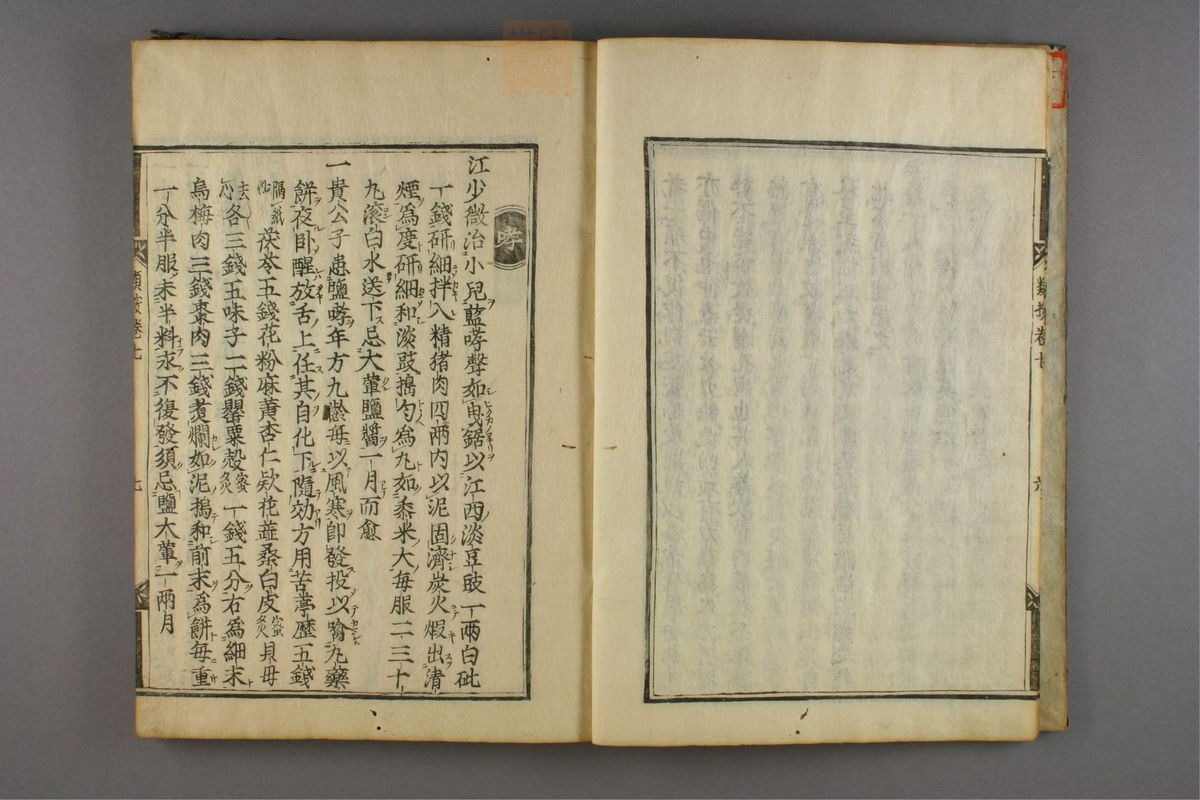 哮
江少微治小兒藍哮聲如曳鋸以江西淡豆豉一兩白砒
一錢研細拌入精猪肉四兩內以泥固濟炭火煆出清
煙爲度研細和淡豉搗勻爲丸如黍米大每服二三十
丸滚白水送下忌大葷鹽醬一月而愈
一貴公子患鹽哮年方九齡每以風寒即發投以喻丸藥
餅夜卧醒放舌上任其自化下隨効方用苦葶歷五錢
隔紙炒茯苓五錢花粉麻黄杏仁欵花蕋桑白皮蜜炙貝母
去心各三錢五味子二錢罌粟殻蜜炙一錢五分右爲細末
烏梅肉三錢棗肉三錢煮爛如泥搗和前末爲餅每重
一分半服未半料永不復發須忌鹽大葷一兩月
類按卷七
七
類按卷七
六